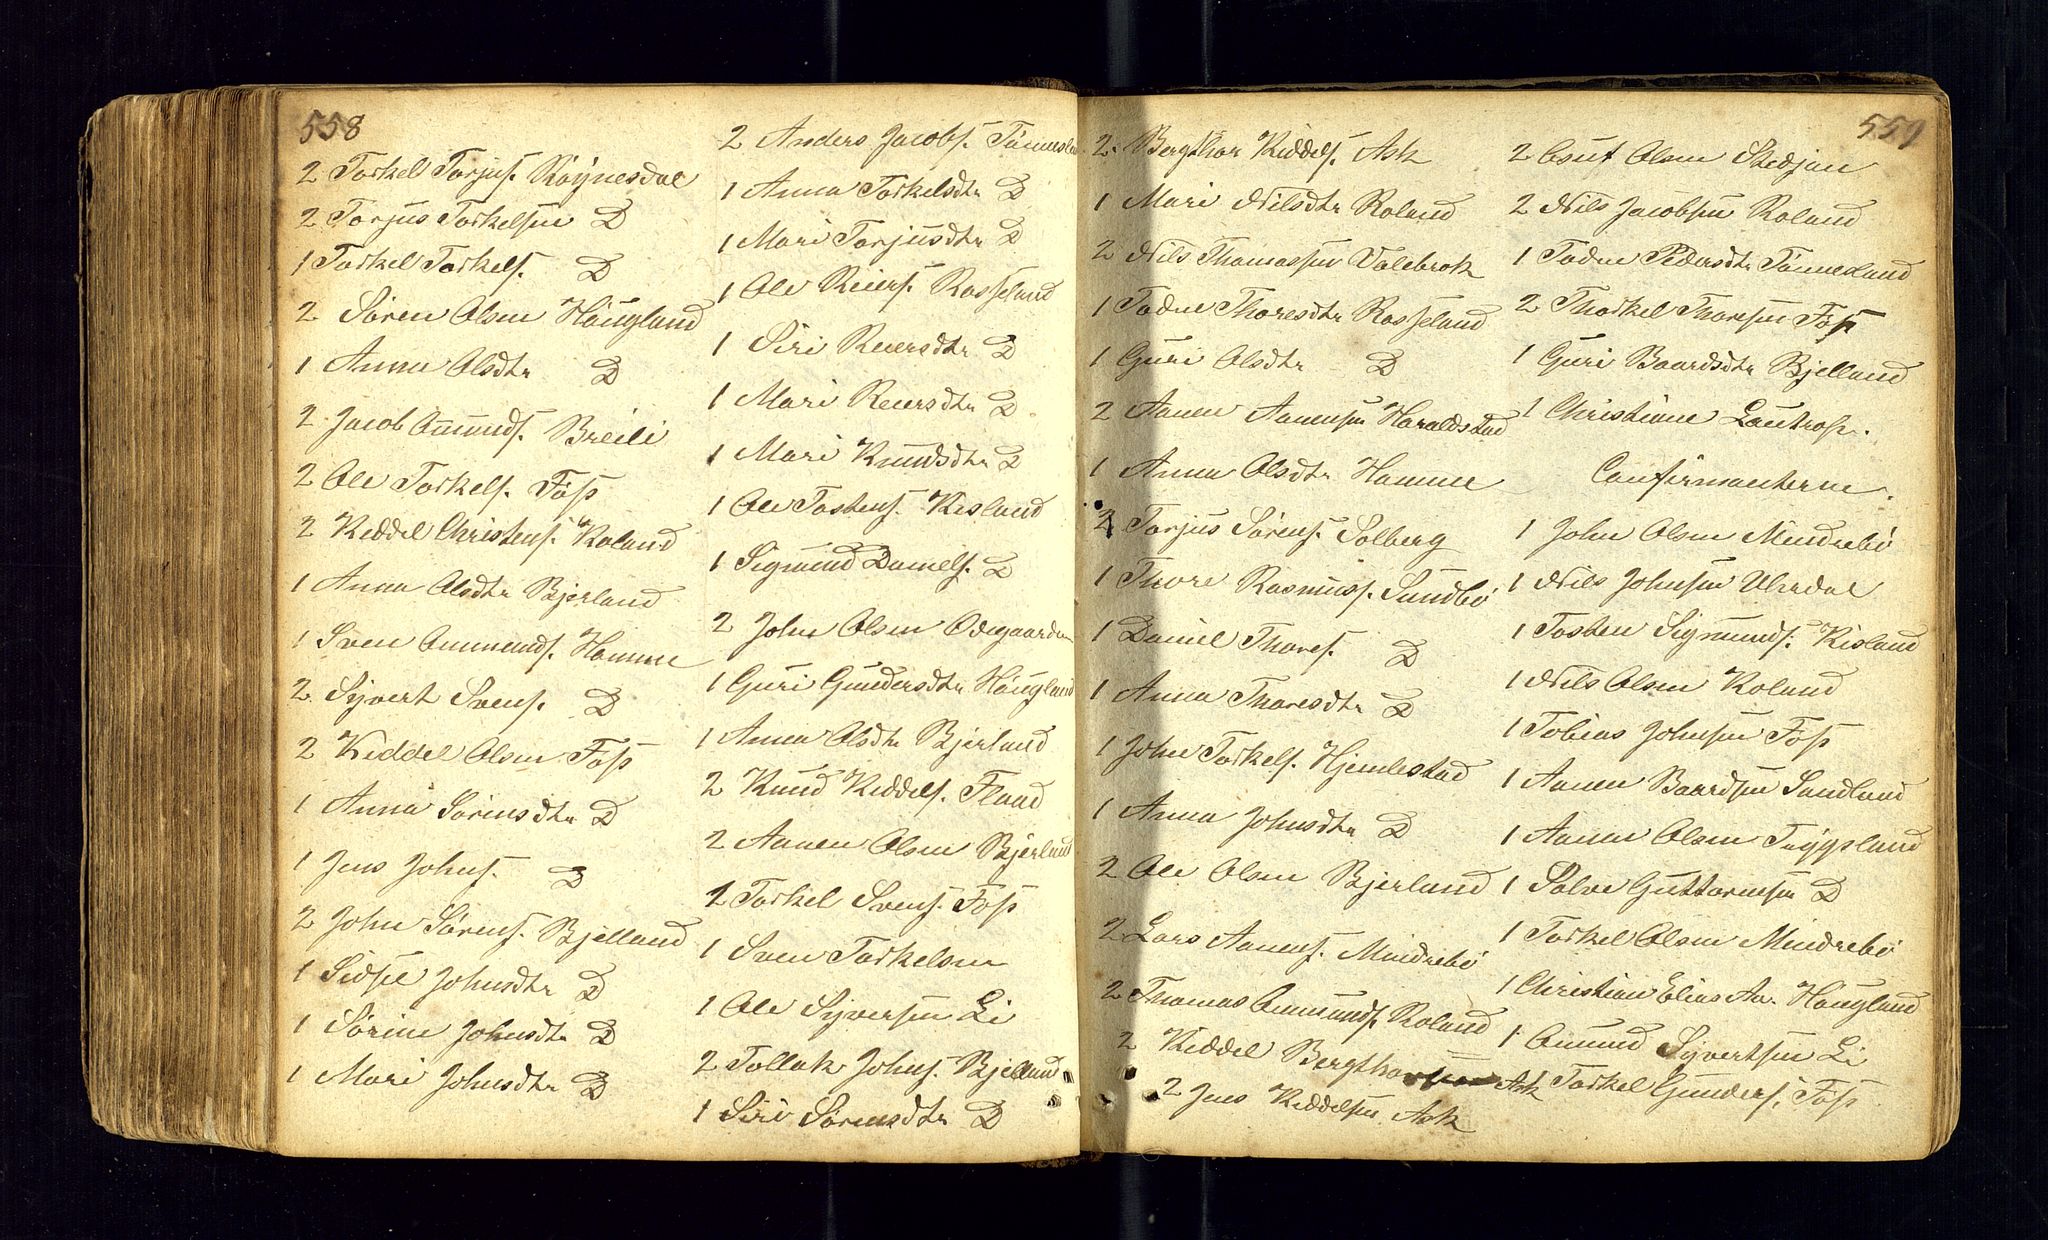 558
2 Torkel Torjus. Röynesdal
2 Torjus Torkelsen D
1 Torkel Torkels. D
2 Sören Olsen Höugland
1 Anna Olsdtr D
2 Jacob Aumunds. Breili
2 Ole Torkels. Foss
2 Keddel Christens. Roland
1 Anna Olsdtr Bjerland
1 Sven Aumunds. Homme
2 Syvert Svens. D
2 Keddel Olsen Foss
1 Anna Sörensdtr D
1 Jens Johns. D
2 John Sörens. Bjelland
1 Sidsel Johnsdtr D
1 Sörine Johnsdtr D
1 Mari Johnsdtr D
2 Anders Jacobs. Tönnesland
1 Anna Torkelsdtr D
1 Mari Torjusdtr D
1 Ole Reiers. Rosseland
1 Siri Reiersdtr D
1 Mari Reiersdtr D
1 Mari Knudsdtr D
1 Ole Tostens. Kisland
1 Sigmund Daniels. D
2 John Olsen Odegaarden
1 Guri Gundersdtr Höugland
1 Anna Olsdtr Bjerland
2 Knud Keddels. Flaad
2 Aanen Olsen Bjerland
2 Torkel Svens. Foss
1 Sven Torkelsen
1 Ole Syversen Li
2 Tollak Johns. Bjelland
1 Siri Sörensdtr D
559
2 Bergthor Keddels. Ask
1 Mari Nilsdtr Roland
2 Nils Thomassen Valebrok
1 Todne Thoresdtr Rosseland
1 Guri Olsdtr D
2 Aanen Aanensen Haraldstad
1 Anna Olsdtr Homme
2 Torjus Sörens. Solberg
1 Thore Rasmuss. Sundbö
1 Daniel Thores. D
1 Anna Thoresdtr D
1 John Torkels. Hjemlestad
1 Anna Johnsdtr D
2 Ole Olsen Bjerland
2 Lars Aanens. Mindrebö
2 Thomas Aumunds. Roland
2 Keddel Bergthorsen Ask
2 Jens Keddelsen Ask
2 Osuf Olsen Skedjan
2 Nils Jacobsen Roland
1 Todne Pedersdtr Tönnesland
2 Thorkel Thoresen Foss
1 Guri Baardsdtr Bjelland
1 Christiane Lautrop.
Confirmanterne.
1 John Olsen Mindrebö
1 Nils Johnsen Uledal
1 Tosten Sigmunds. Kisland
1 Nils Olsen Roland
1 Tobias Johnsen Foss
1 Aanen Baardsen Sandland
1 Aanen Olsen Tryggsland
1 Salve Guttormsen D
1 Torkel Olsen Mindrebö
1 Christian Elias Aa. Höugland
1 Aumund Syvertsen Li
Torkel Gunders. Foss